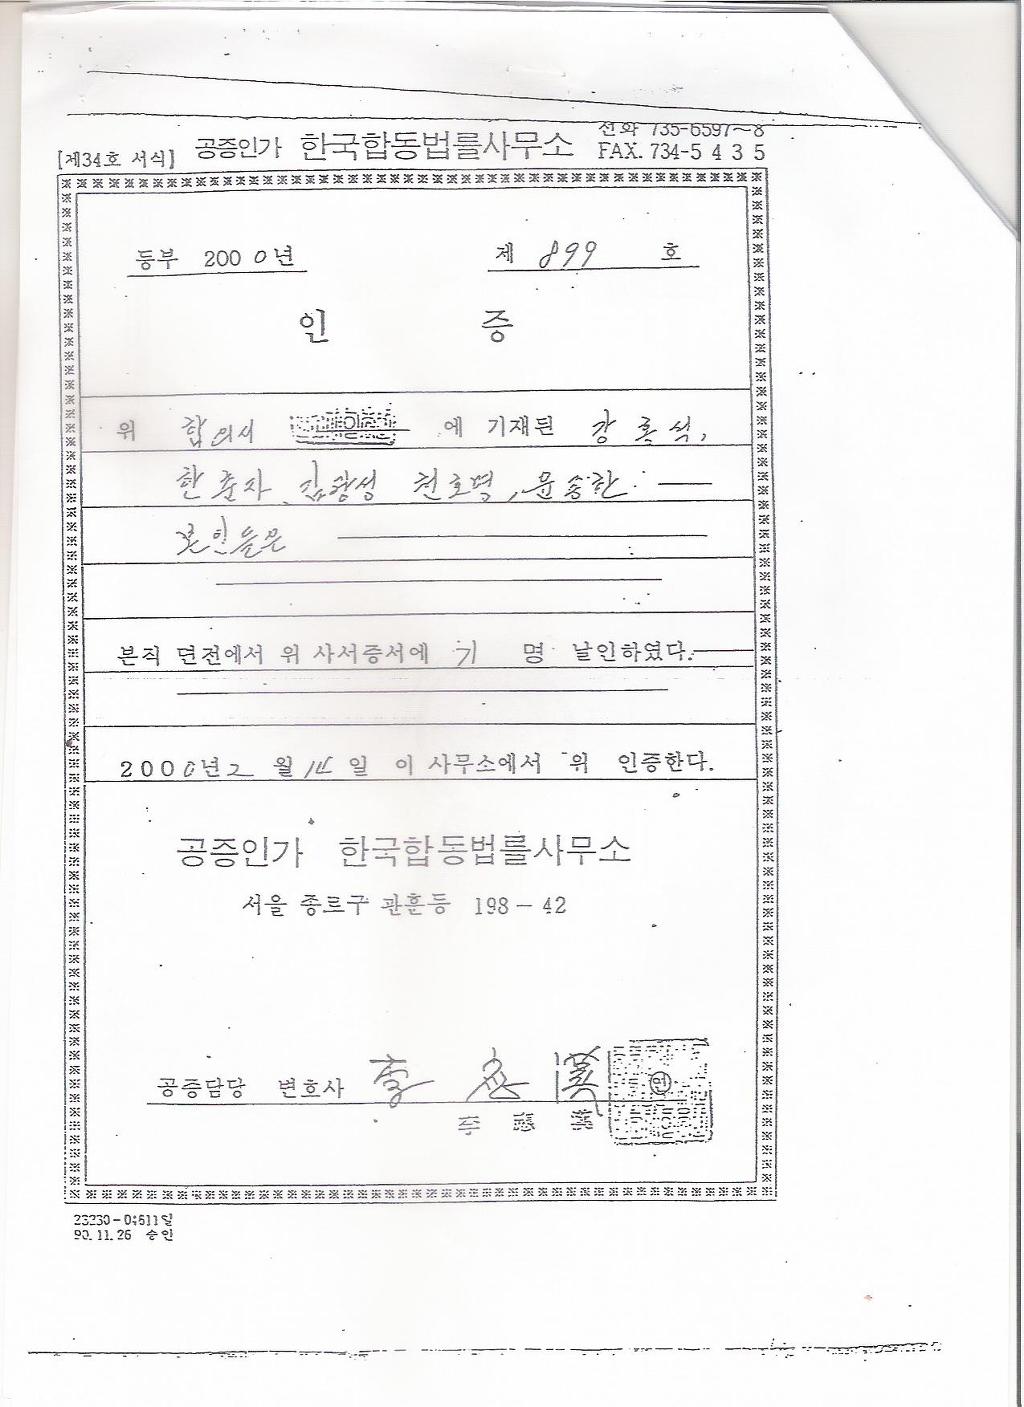 [제34호 서식] 공증인가 한국합동법률사무소
전화 735-6597~8
FAX. 734-5435
등부 2000년 제 899 호
인 증
위 합의서 에 기재된 강 흥 식,
한 춘자, 김광성 천호명, 문송한
본인들은
본직 면전에서 위 사서증서에 기 명 날인하였다.
2000년 2 월 14 일 이 사무소에서 위 인증한다.
공증인가 한국합동법률사무소
서울 종로구 관훈동 198-42
공증담당 변호사 李 應 漢
李 應 漢
90.11.26 승인